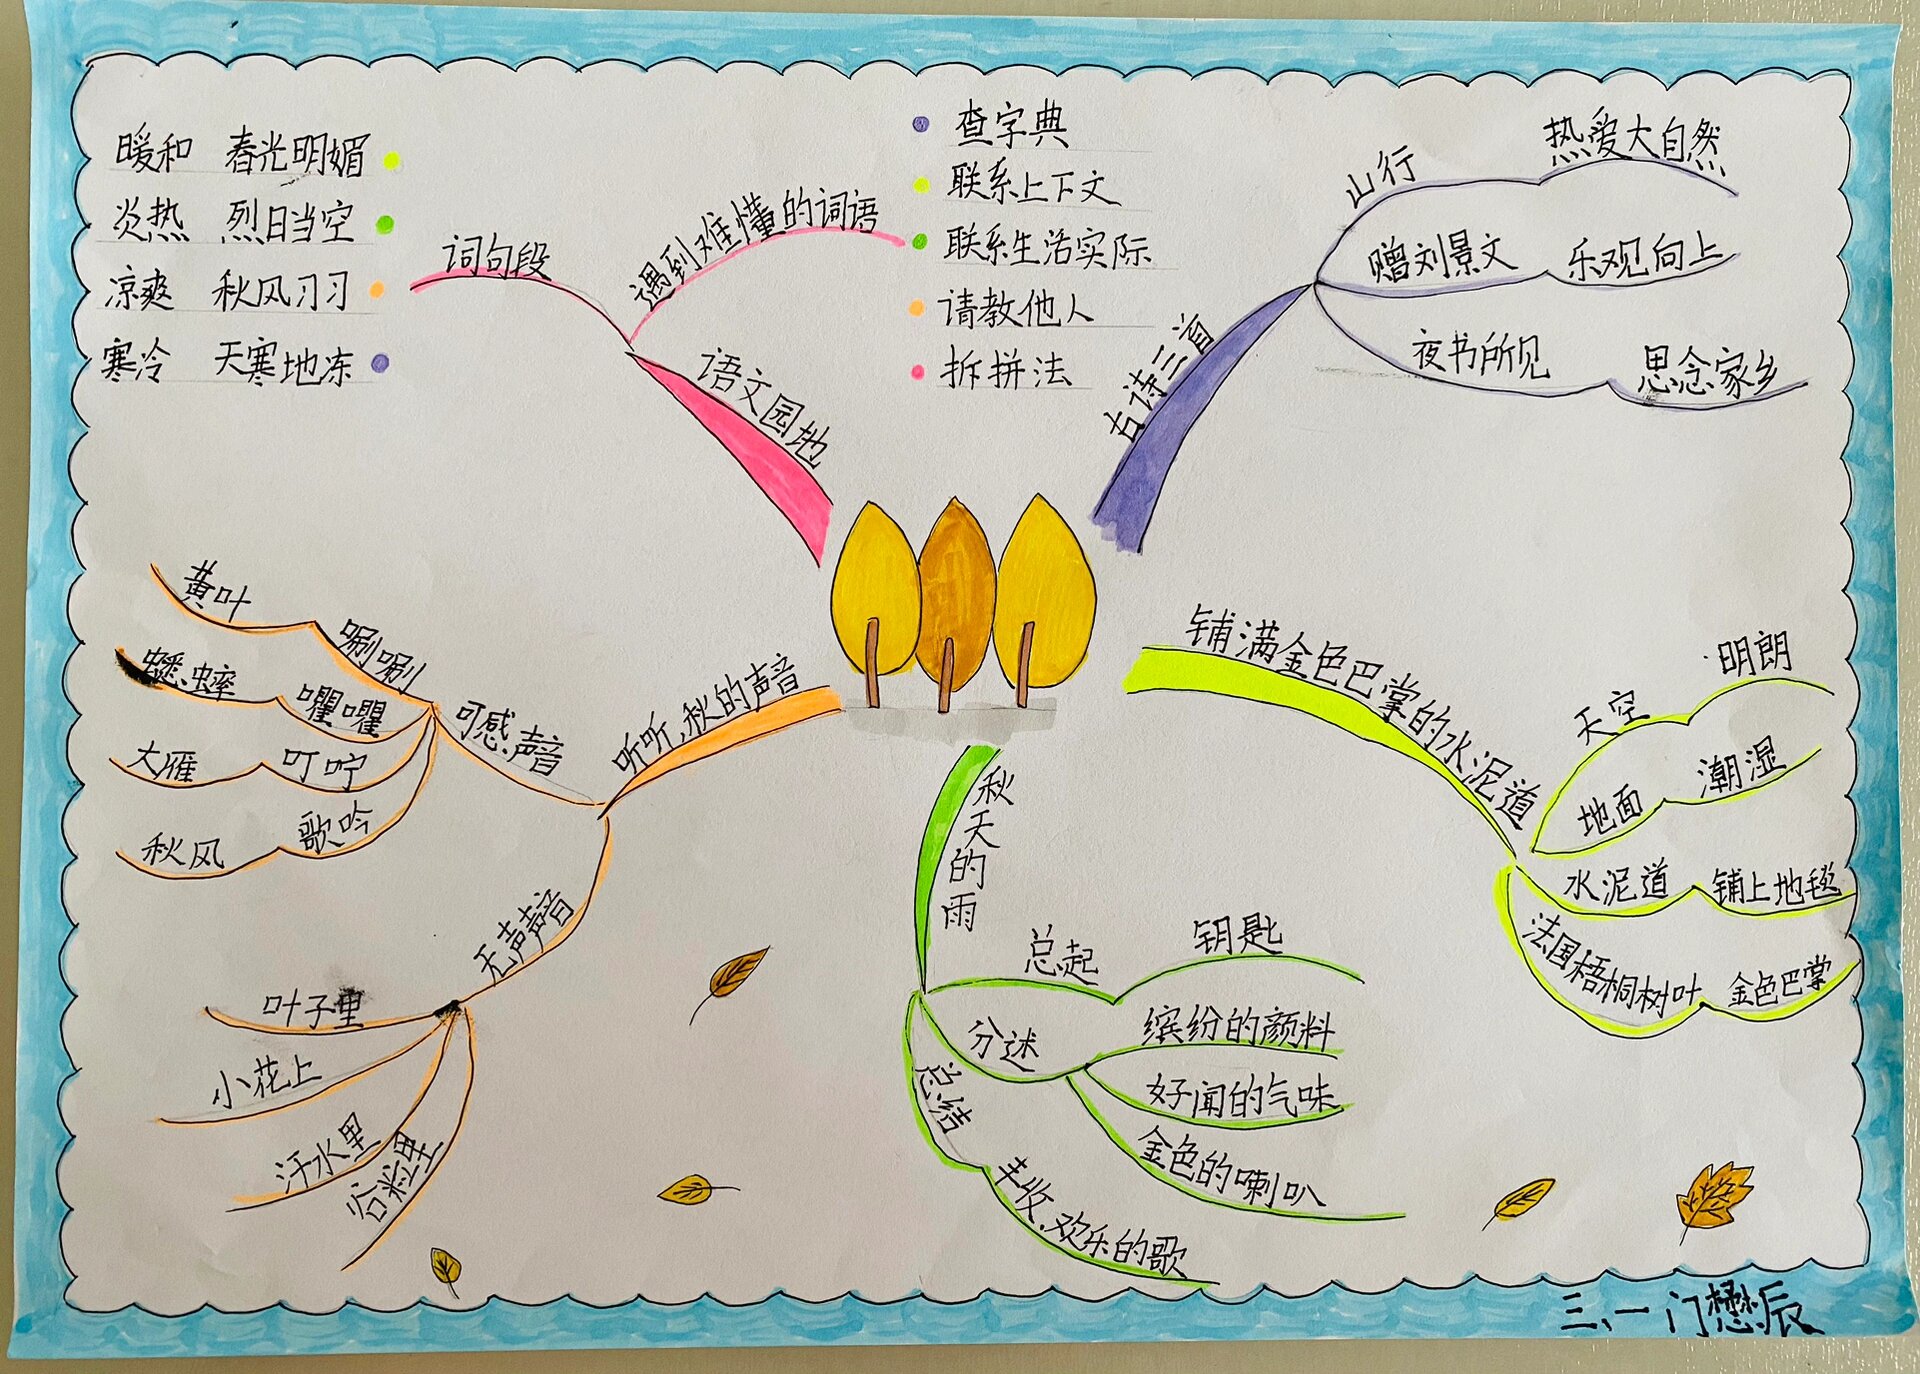 暖和 春光明媚
炎热 烈日当空
凉爽 秋风习习
寒冷 天寒地冻
词句段
遇到难懂的词语
查字典
联系上下文
联系生活实际
请教他人
拆拼法
语文园地
古诗三首
山行
热爱大自然
赠刘景文
乐观向上
夜书所见
思念家乡
听听,秋的声音
可感声音
唰唰
黄叶
㘗㘗
蟋蟀
叮咛
大雁
歌吟
秋风
无声声音
叶子里
小花上
汗水里
谷粒里
秋天的雨
总起
钥匙
分述
缤纷的颜料
好闻的气味
金色的喇叭
总结
丰收、欢乐的歌
铺满金色巴掌的水泥道
天空
明朗
地面
潮湿
水泥道
铺上地毯
法国梧桐树叶
金色巴掌
三、一 门懋辰